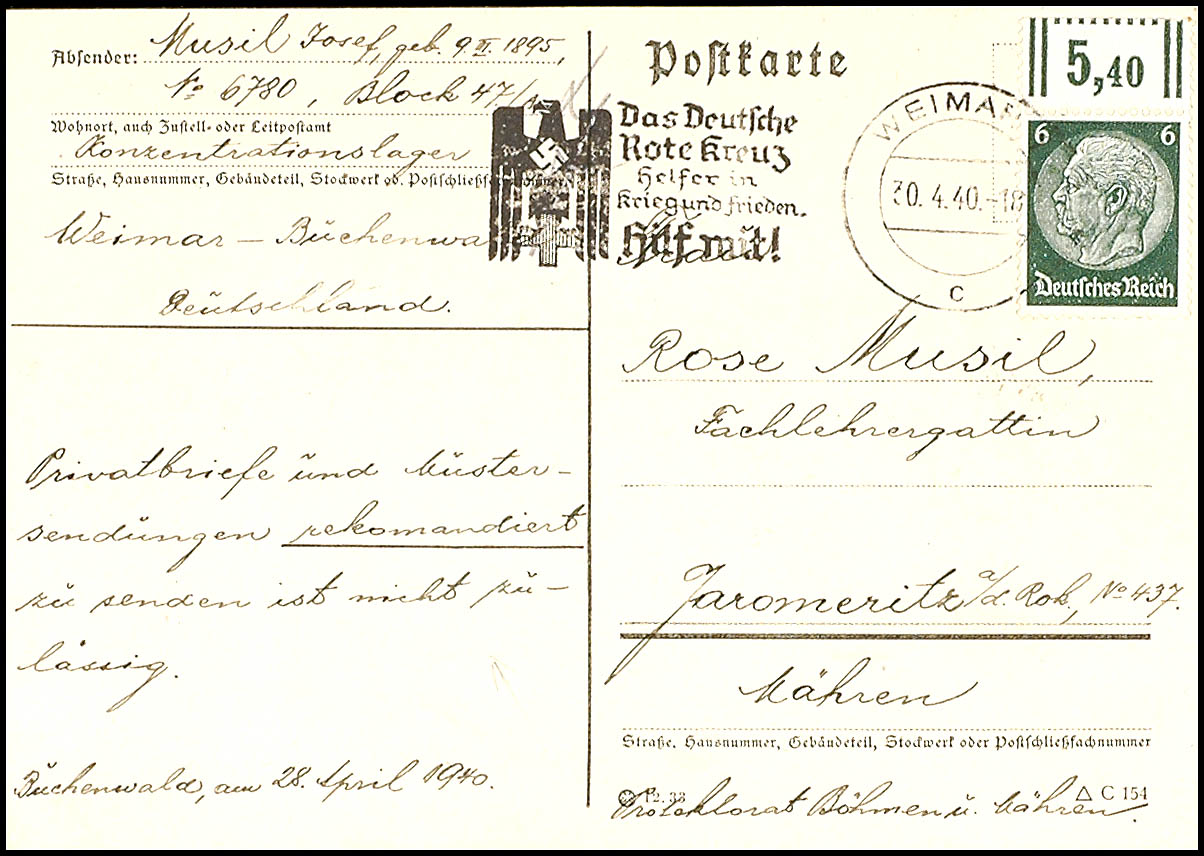 Absender: Musil Josef, geb. 9. II. 1895,
No 6780, Block 47/
Wohnort, auch Zustell- oder Leitpostamt
Konzentrationslager
Straße, Hausnummer, Gebäudeteil, Stockwerk od. Postschließfachnummer
Weimar – Buchenwald
Deutschland.
Privatbriefe und Muster-
sendungen rekomandiert
zu senden ist nicht zu-
lässig.
Buchenwald, am 28. April 1940.
Postkarte
Das Deutsche
Rote Kreuz
Helfer in
Krieg und Frieden.
Hilf mit!
WEIMAR
30.4.40.-18
c
5,40
6 6
Deutsches Reich
Frau
Rose Musil,
Fachlehrergattin
Jaromeritz a/d. Rok., No 437.
Mähren
Straße, Hausnummer, Gebäudeteil, Stockwerk oder Postschließfachnummer
12. 33 C 154
Protektorat Böhmen u. Mähren.